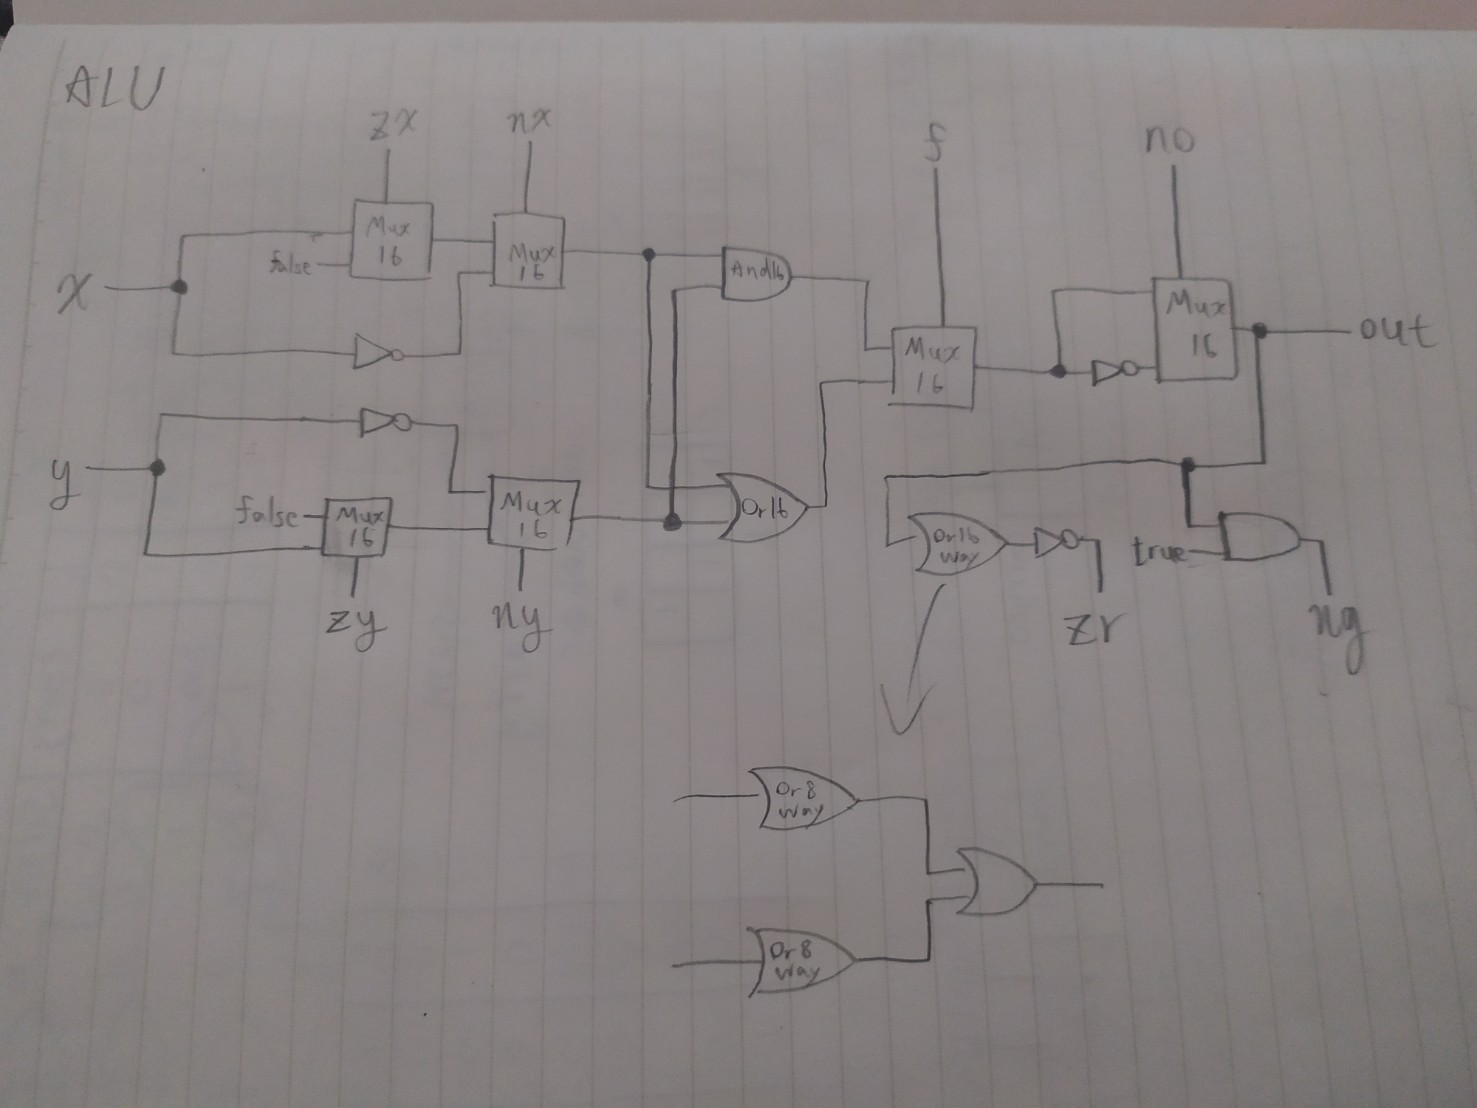 ALU
zx
nx
f
no
x
false
Mux
16
Mux
16
And16
Mux
16
Mux
16
out
y
false
Mux
16
Mux
16
Or16
zy
ny
Or16
Way
true
zr
ng
Or8
Way
Or8
Way